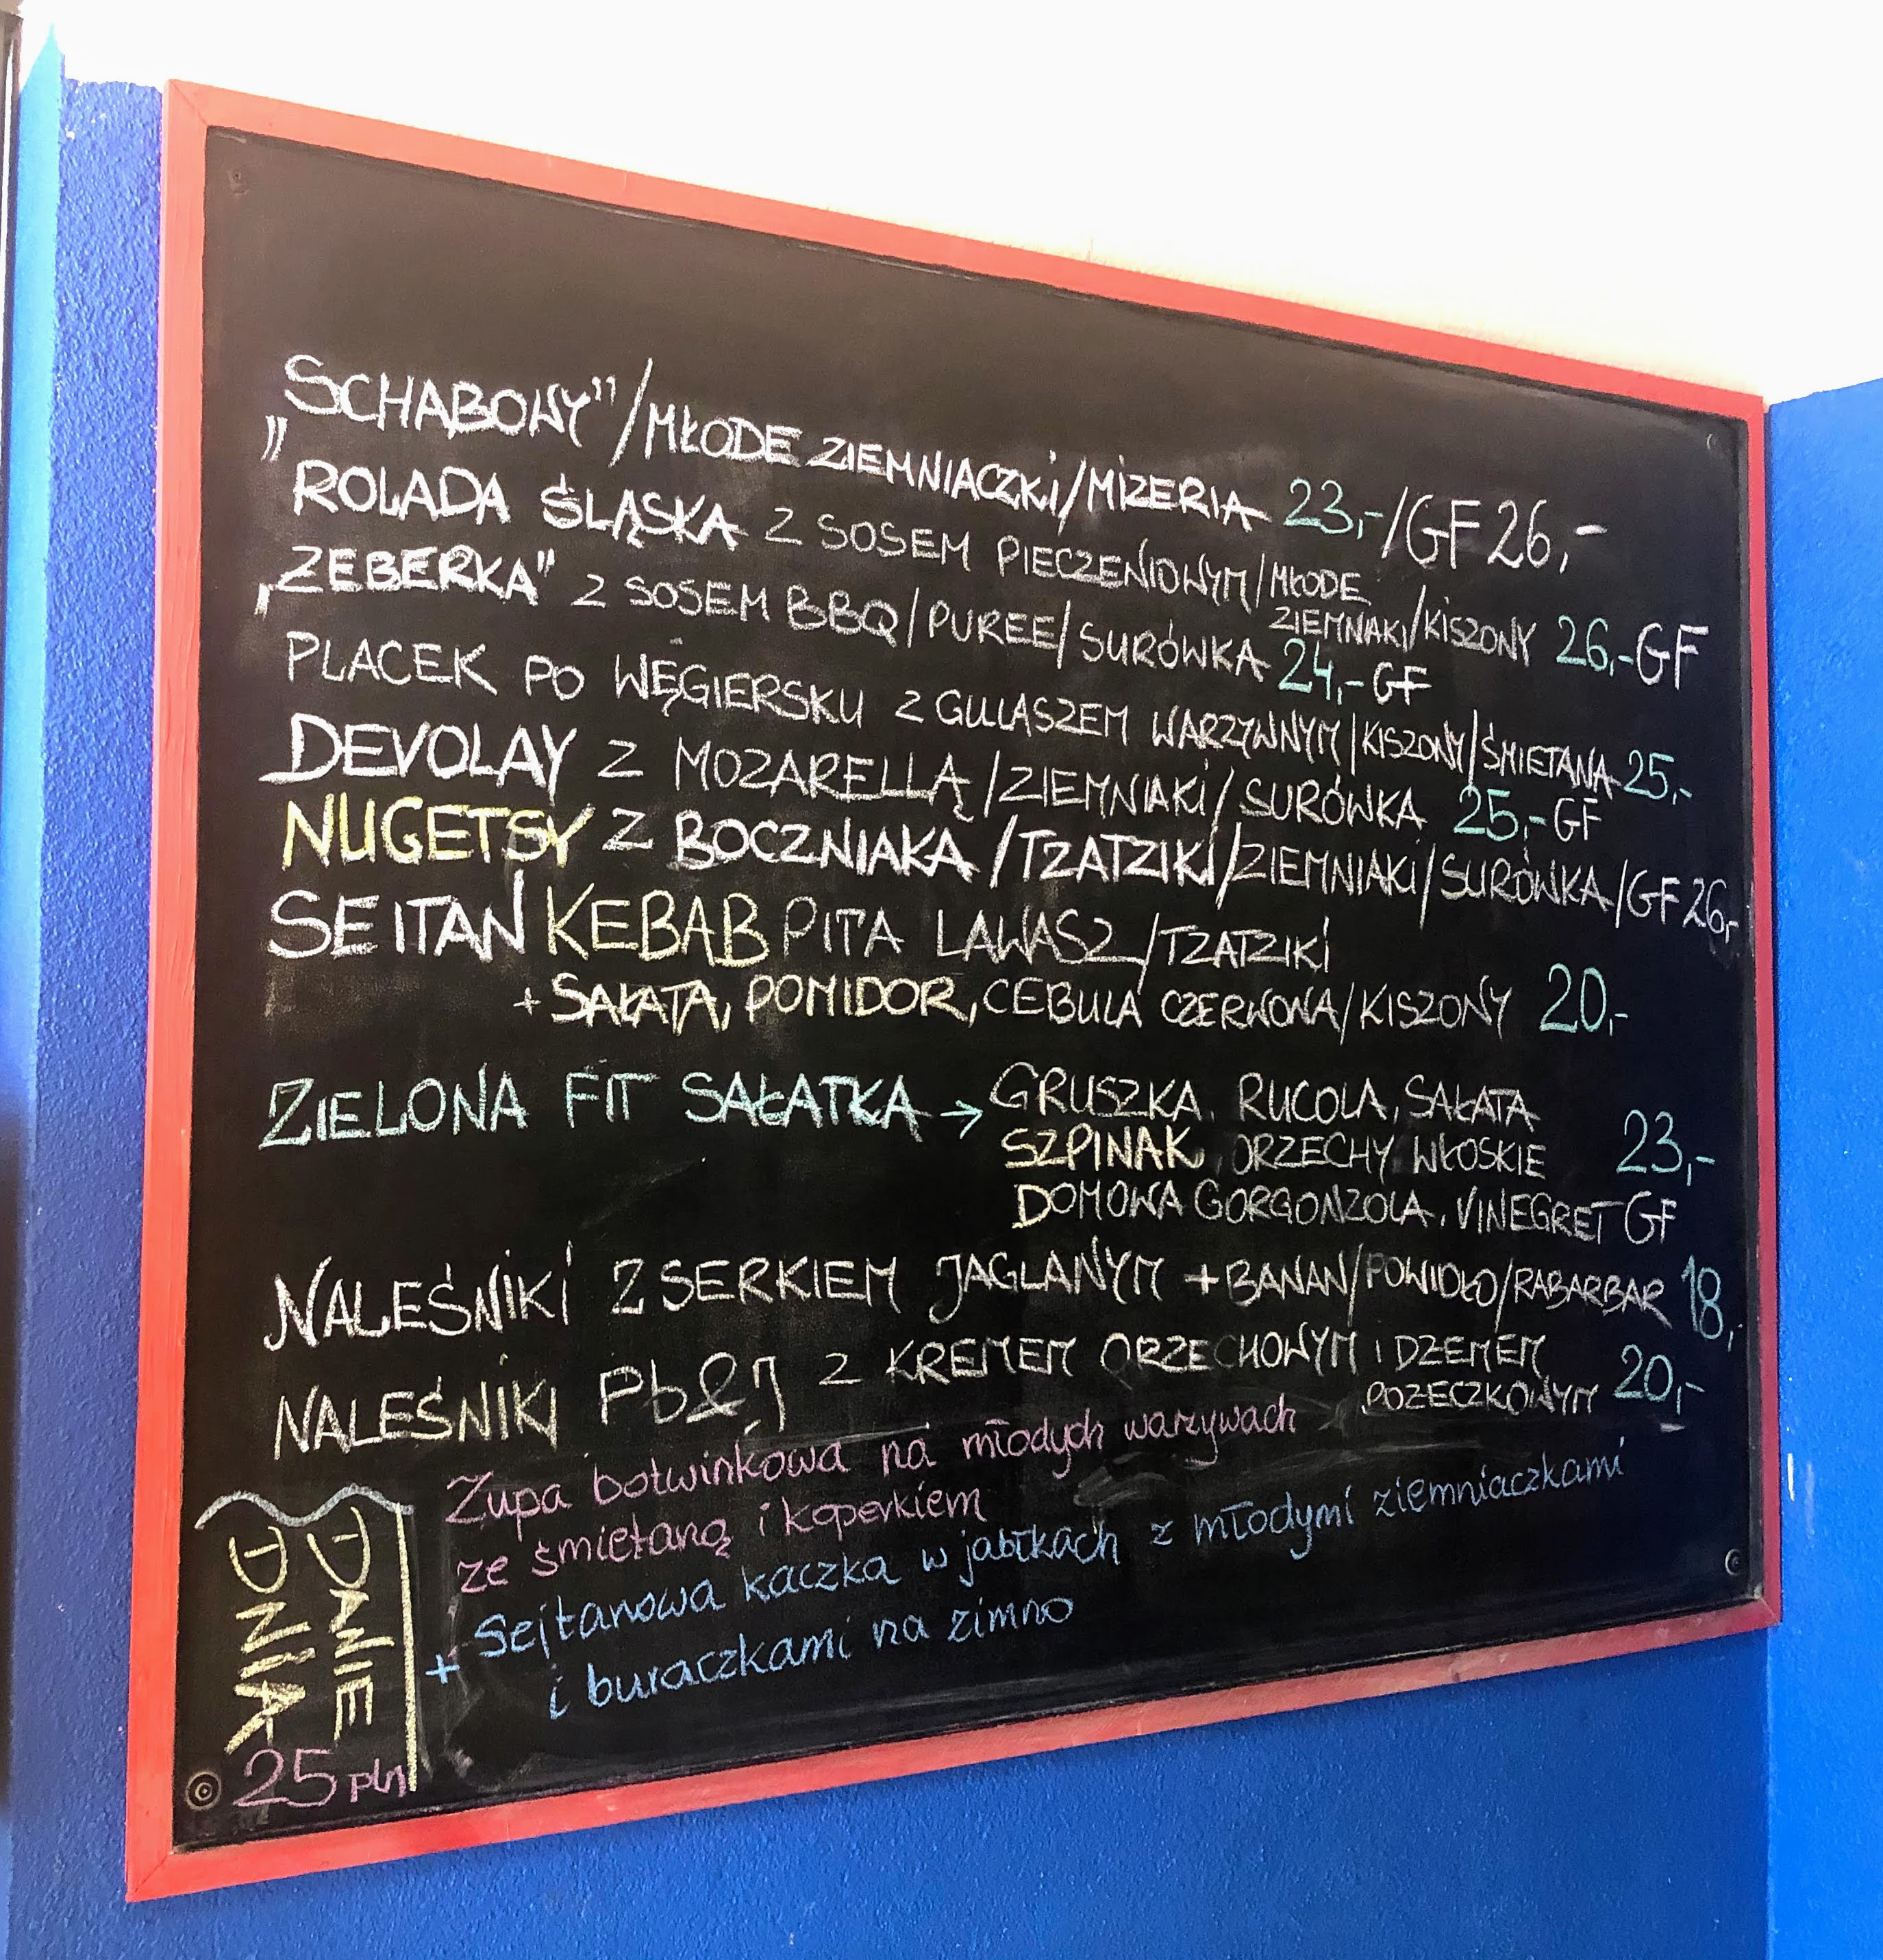 „SCHABOWY"/MŁODE ZIEMNIACZKI/MIZERIA 23,-/GF 26,-
ROLADA ŚLĄSKA Z SOSEM PIECZENIOWYM/MŁODE
ZIEMNIAKI/KISZONY 26,-GF
„ŻEBERKA" Z SOSEM BBQ/PUREE/SURÓWKA 24,-GF
PLACEK PO WĘGIERSKU Z GULASZEM WARZYWNYM/KISZONY/ŚMIETANA 25,-
DEVOLAY Z MOZARELLĄ/ZIEMNIAKI/SURÓWKA 25,-GF
NUGETSY Z BOCZNIAKA/TZATZIKI/ZIEMNIAKI/SURÓWKA/GF 26,-
SEITAN KEBAB PITA LAWASZ/TZATZIKI
+SAŁATA, POMIDOR, CEBULA CZERWONA/KISZONY 20,-
ZIELONA FIT SAŁATKA → GRUSZKA, RUCOLA, SAŁATA
SZPINAK, ORZECHY WŁOSKIE 23,-
DOMOWA GORGONZOLA, VINEGRET GF
NALEŚNIKI Z SERKIEM JAGLANYM + BANAN/POWIDŁO/RABARBAR 18,-
NALEŚNIKI Pb&J Z KREMEM ORZECHOWYM I DŻEMEM
POŻECZKOWYM 20,-
DANIE
DNIA
25 pln
Zupa botwinkowa na młodych warzywach
ze śmietaną i koperkiem
+ Sejtanowa kaczka w jabłkach z młodymi ziemniaczkami
i buraczkami na zimno